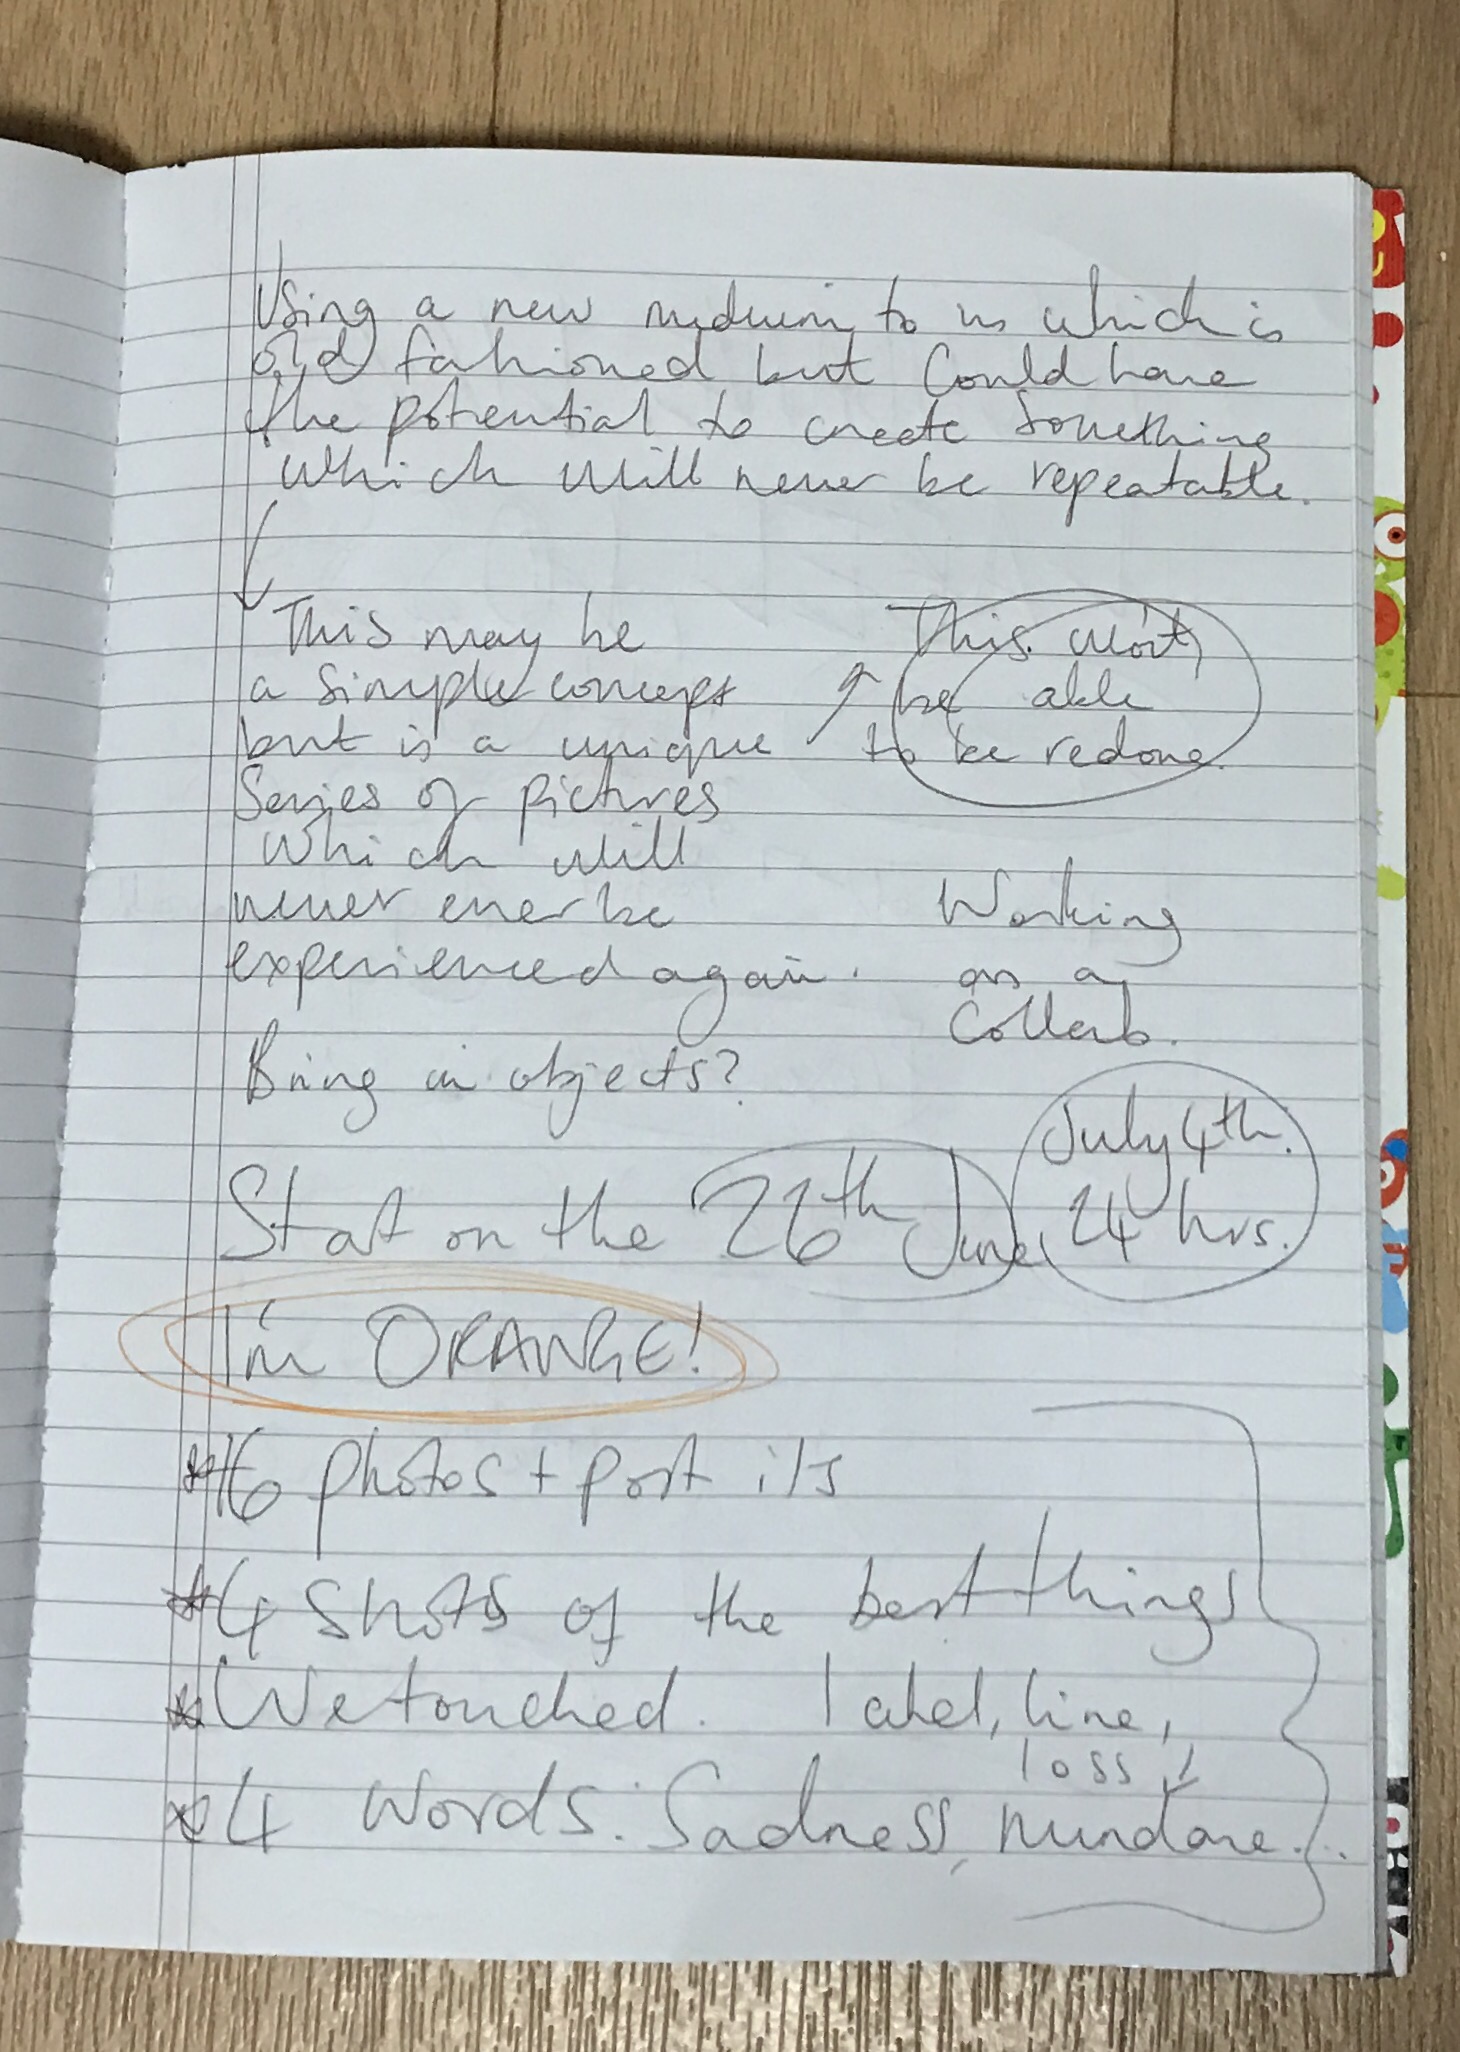 Using a new medium to us which is
old fashioned but could have
the potential to create something
which will never be repeatable.
This may be
a simple concept
but is a unique
Series of pictures
which will
never ever be
experienced again.
This wont
be able
to be redone.
Working
as a
Collab.
Bring in objects?
Start on the 26th June
July 4th.
24 hrs.
I'm ORANGE!
16 photos + post its
4 shots of the best things
We touched. label, line,
loss
4 words. Sadness, mundane...